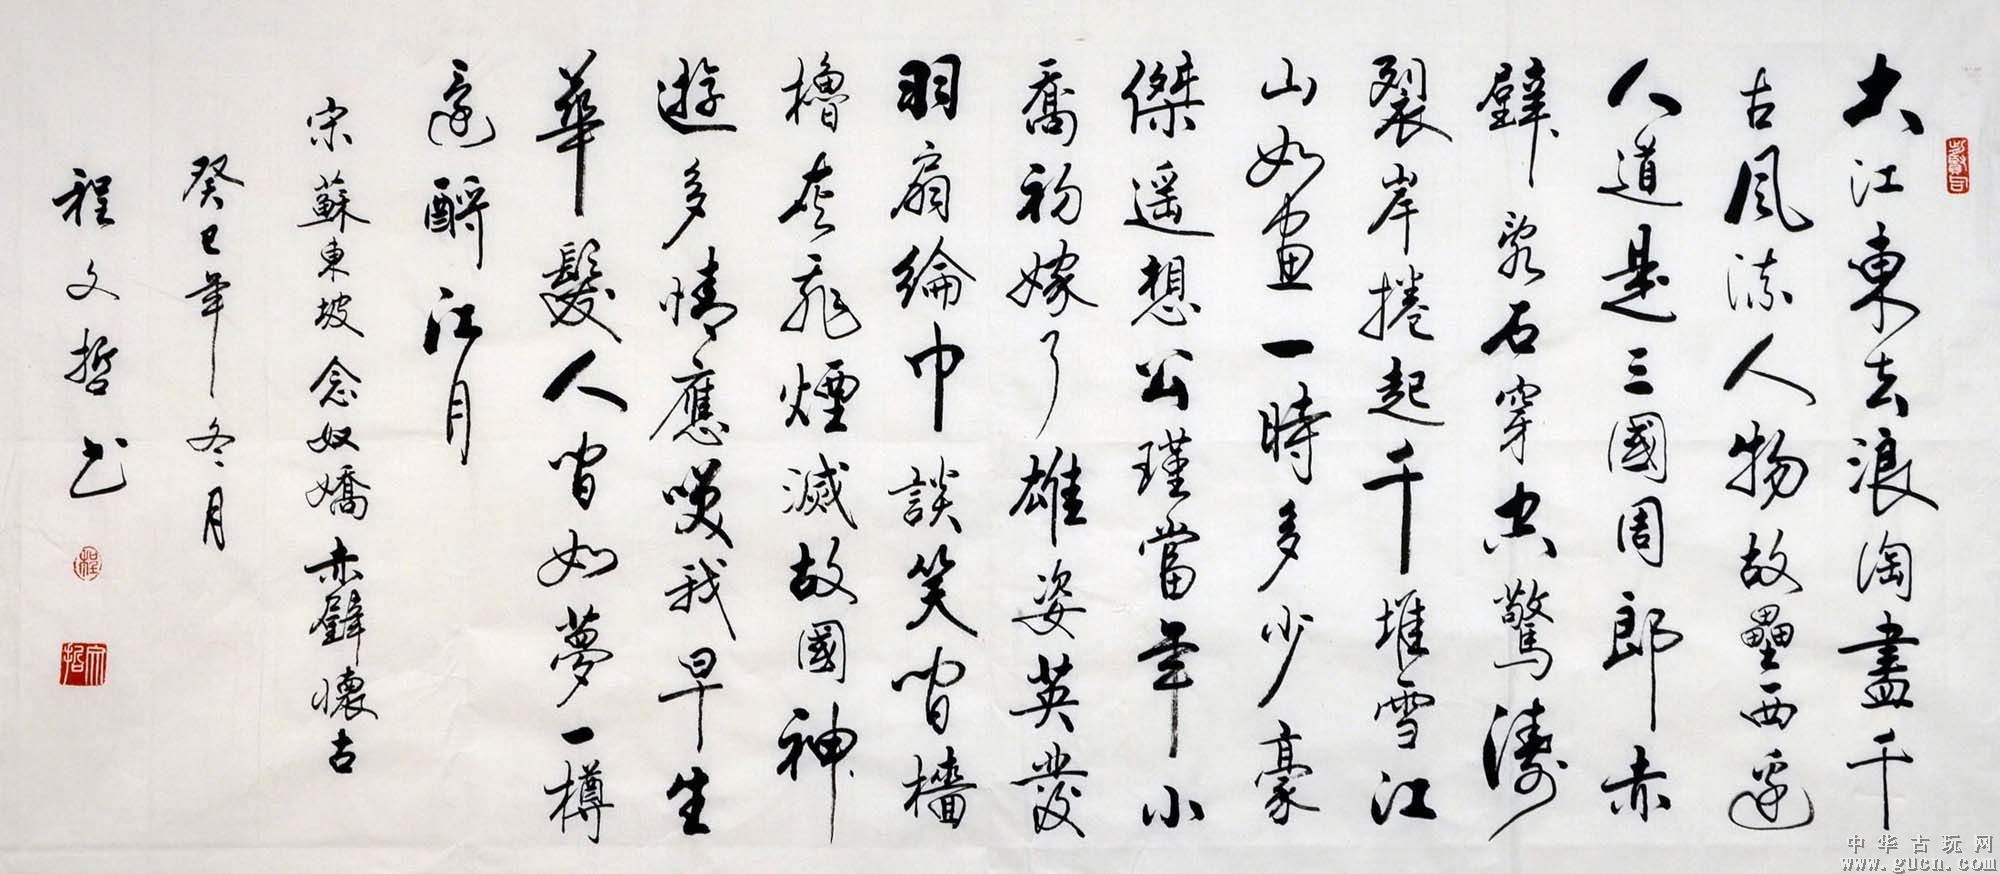 大江東去浪淘盡千
古風流人物故壘西邊
人道是三國周郎赤
壁亂石穿空驚濤
裂岸捲起千堆雪江
山如畫一時多少豪
傑遥想公瑾當年小
喬初嫁了雄姿英發
羽扇綸巾談笑間檣
櫓灰飛煙滅故國神
遊多情應笑我早生
華髮人間如夢一樽
還酹江月
宋蘇東坡念奴嬌赤壁懷古
癸巳年冬月
程文哲书
程
文哲
中华古玩网
www.gucn.com